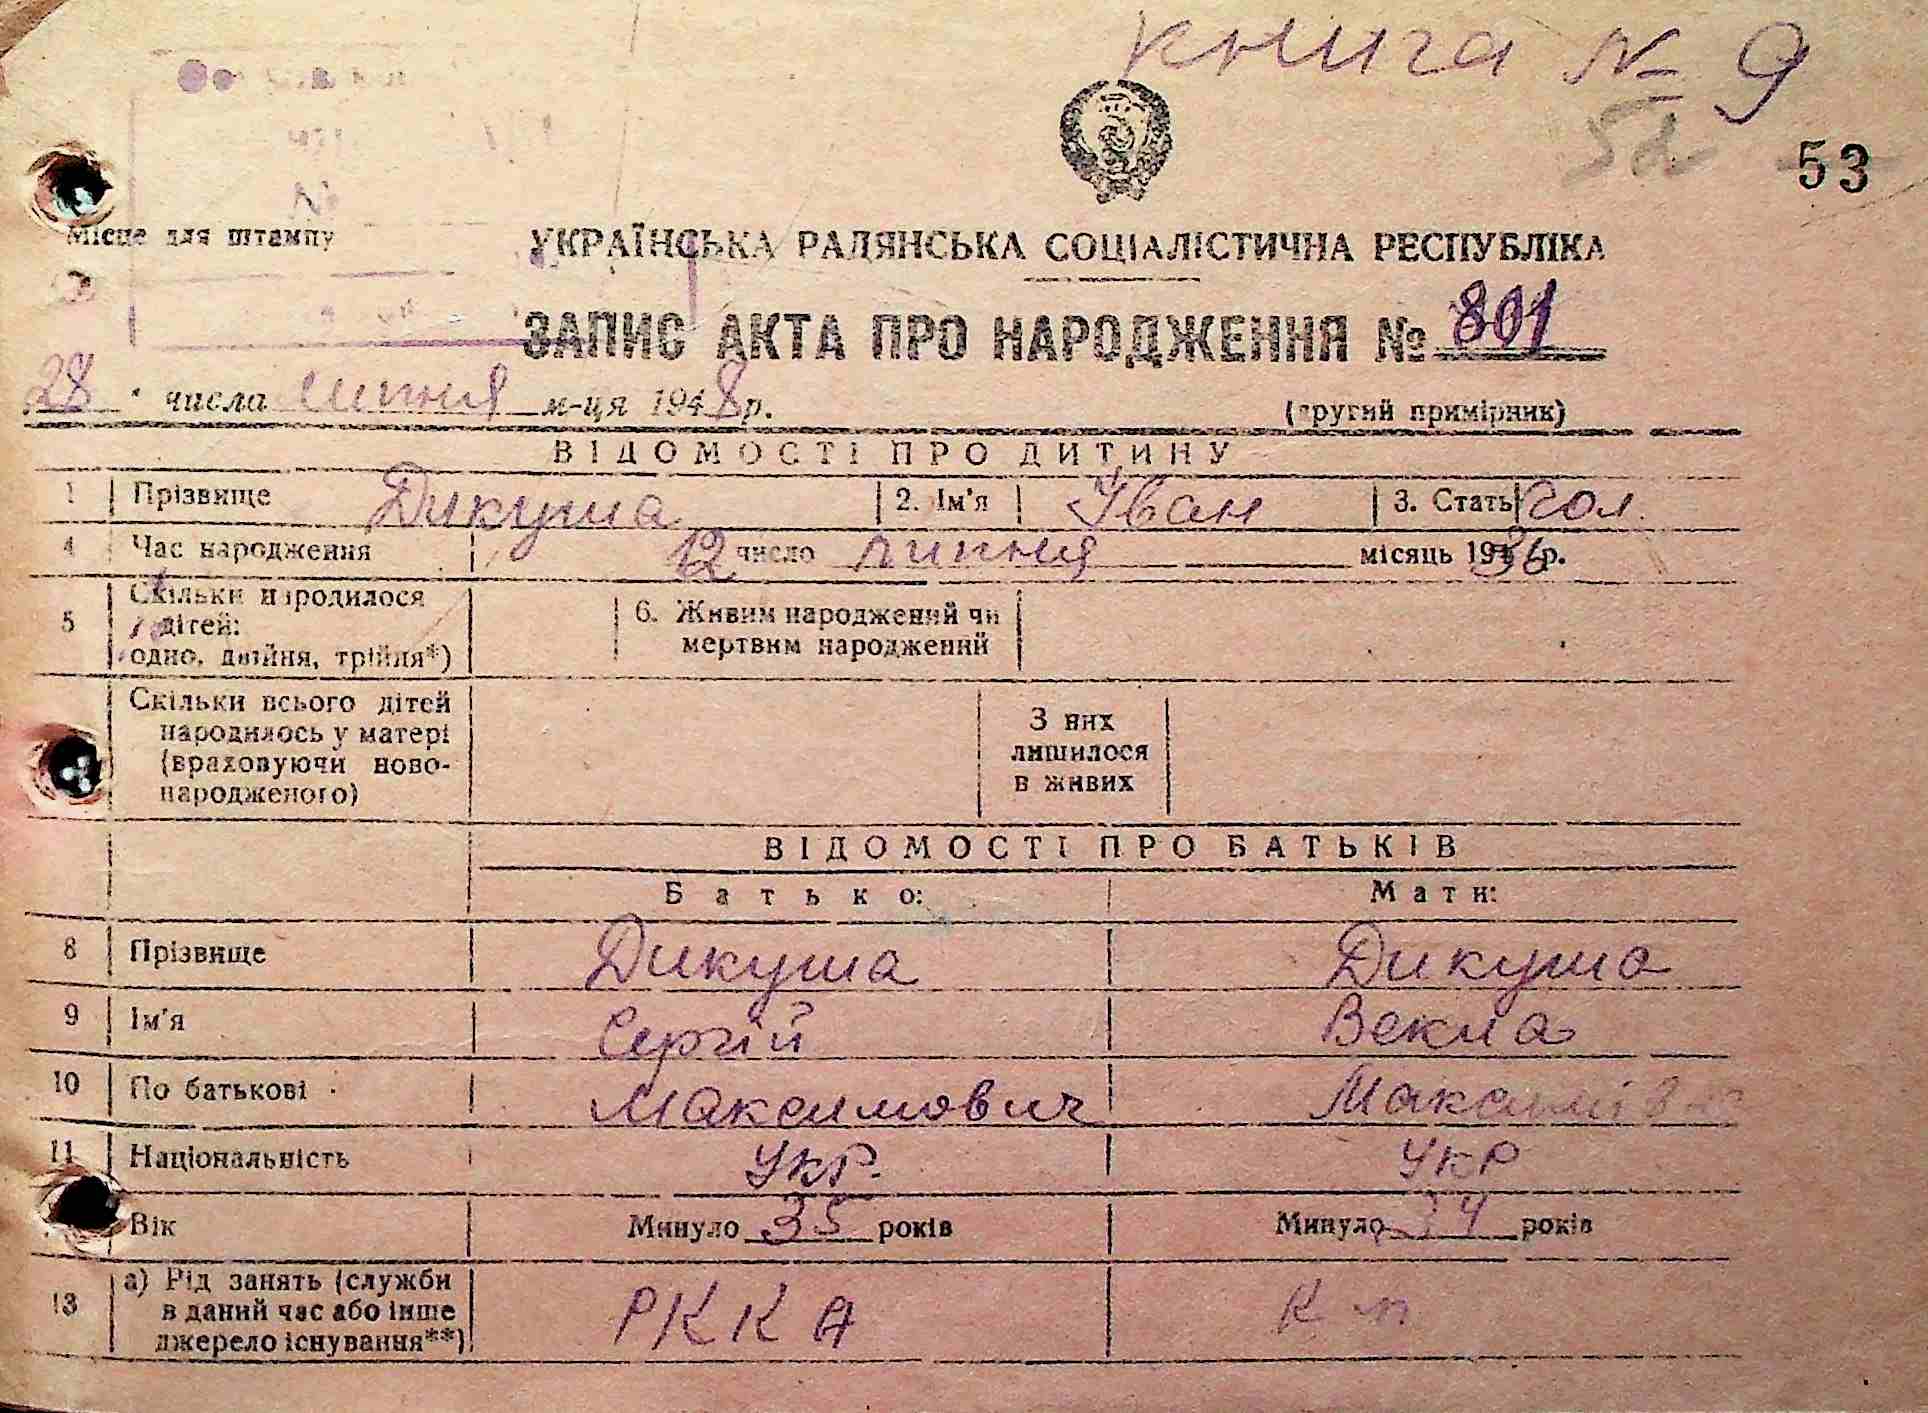 книга № 9
52
53
Місце для штампу
УКРАЇНСЬКА РАДЯНСЬКА СОЦІАЛІСТИЧНА РЕСПУБЛІКА
ЗАПИС АКТА ПРО НАРОДЖЕННЯ № 801
28 числа липня м-ця 1948 р.
(другий примірник)
ВІДОМОСТІ ПРО ДИТИНУ
1 Прізвище Дикуша 2. Ім'я Іван 3. Стать чол.
4 Час народження 12 число липня місяць 1936 р.
5 Скільки народилося дітей: одно, двійня, трійня*) 6. Живим народжений чи мертвим народжений
Скільки всього дітей народилось у матері (враховуючи ново-народженого) З них лишилося в живих
ВІДОМОСТІ ПРО БАТЬКІВ
Батько: Мати:
8 Прізвище Дикуша Дикуша
9 Ім'я Сергій Векла
10 По батькові Максимович Максимівна
11 Національність Укр. Укр
Вік Минуло 35 років Минуло 34 років
13 а) Рід занять (служби в даний час або інше джерело існування**) РККА к п